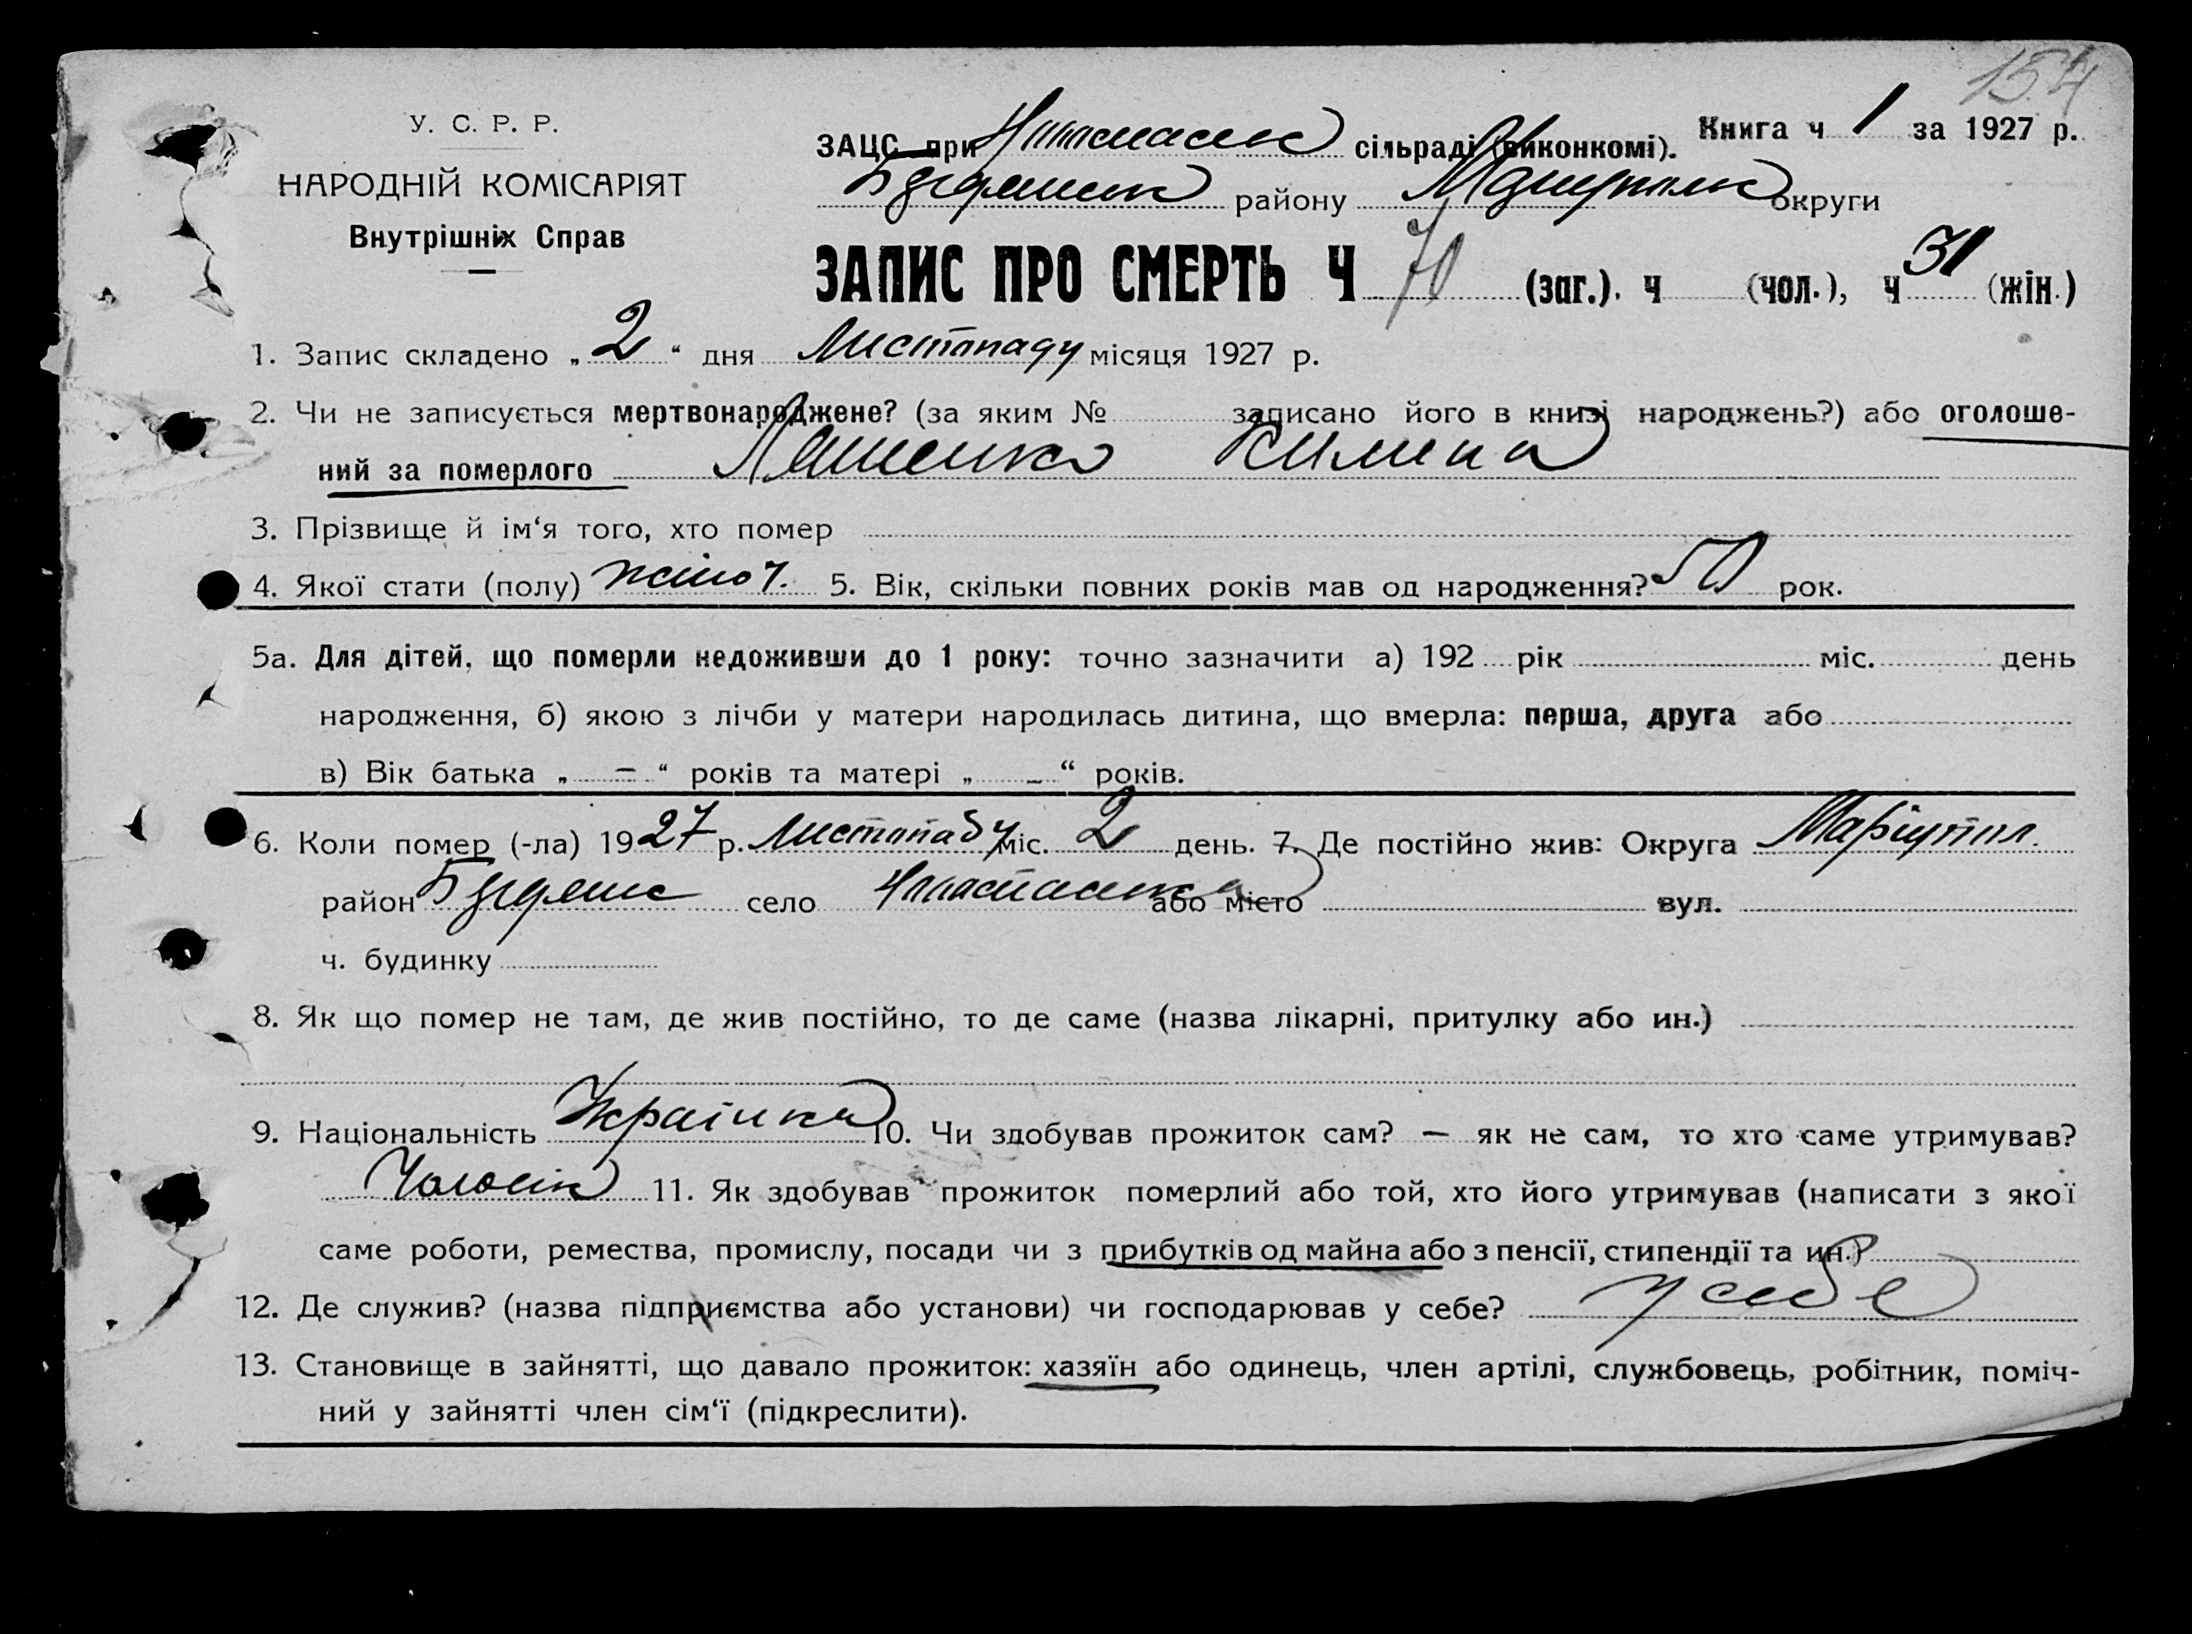 154
У. С. Р. Р.
НАРОДНІЙ КОМІСАРІЯТ
Внутрішніх Справ
ЗАЦС при сільраді (виконкомі). Книга ч 1 за 1927 р.
району округи
ЗАПИС ПРО СМЕРТЬ Ч 70 (заг.). ч (чол.), ч 31 (жін.)
1. Запис складено „ 2 “ дня Листопаду місяця 1927 р.
2. Чи не записується мертвонароджене? (за яким № записано його в книзі народжень?) або оголоше-
ний за померлого Килина
3. Прізвище й ім‘я того, хто помер
4. Якої стати (полу) жіноч. 5. Вік, скільки повних років мав од народження? 50 рок.
5а. Для дітей, що померли недоживши до 1 року: точно зазначити а) 192 рік міс. день
народження, б) якою з лічби у матери народилась дитина, що вмерла: перша, друга або
в) Вік батька „ — “ років та матері „ — “ років.
6. Коли помер (-ла) 1927 р. Листопаду міс. 2 день. 7. Де постійно жив: Округа Маріупіл.
район село або місто вул.
ч. будинку
8. Як що помер не там, де жив постійно, то де саме (назва лікарні, притулку або ин.)
9. Національність Українка 10. Чи здобував прожиток сам? — як не сам, то хто саме утримував?
Чоловік 11. Як здобував прожиток померлий або той, хто його утримував (написати з якої
саме роботи, ремества, промислу, посади чи з прибутків од майна або з пенсії, стипендії та ин.)
12. Де служив? (назва підприємства або установи) чи господарював у себе? у себе
13. Становище в зайнятті, що давало прожиток: хазяїн або одинець, член артілі, службовець, робітник, поміч-
ний у зайнятті член сім‘ї (підкреслити).